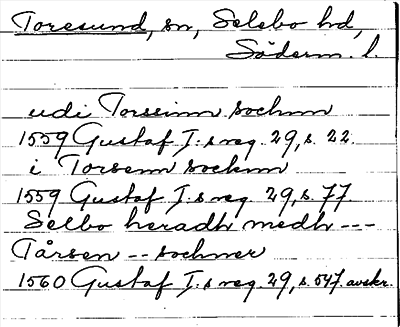 Toresund, sn, Selebo hd,
Söderm. l.
udi Torssinn sochnn
1559 Gustaf I:s reg. 29, s. 22.
i Torsenn socknn
1559 Gustaf I.s reg. 29, s. 77.
Selbo heradh medh ---
Tårsen -- sochner
1560 Gustaf I.s reg. 29, s. 547. avskr.